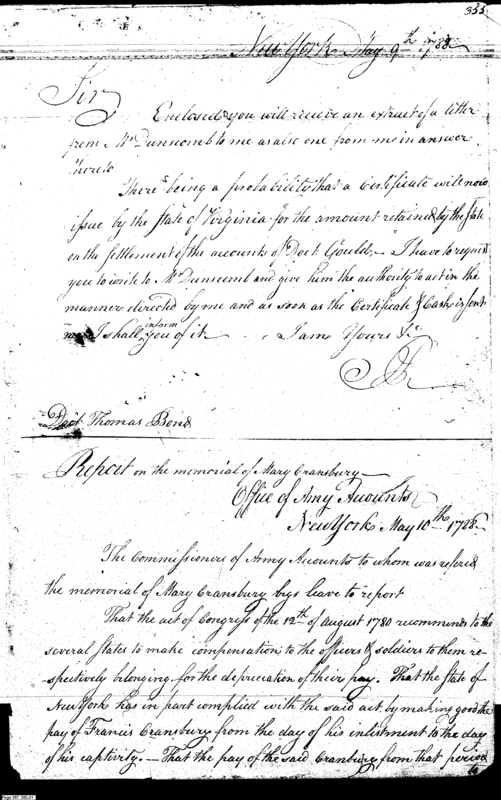 355
New York May 9th 1788
Sir
Enclosed you will receive an extract of a letter
from Mr Dunscomb to me as also one from me in answer
thereto
There being a probability that a Certificate will now
issue by the State of Virginia for the amount retained by the State
on the settlement of the accounts of Doct Gould, I have to request
you to write to Mr Dunscomb and give him the authority to act in the
manner directed by me and as soon as the Certificate & Cash is sent
me I shall inform you of it I am Yours &c
Doct Thomas Bond
Report on the memorial of Mary Cransbury
Office of Army Accounts
New York May 10th 1788
The Commissioners of Army Accounts to whom was refered
the memorial of Mary Cransbury begs leave to report
That the act of Congress of the 12th of august 1780 recommends to the
several States to make compensation to the officers & soldiers to them re-
spectively belonging for the depreciation of their pay. That the State of
New York has in part complied with the said act, by making good the
pay of Francis Cransbury from the day of his inlistment to the day
of his captivity. — That the pay of the said Cranbury from that period
to